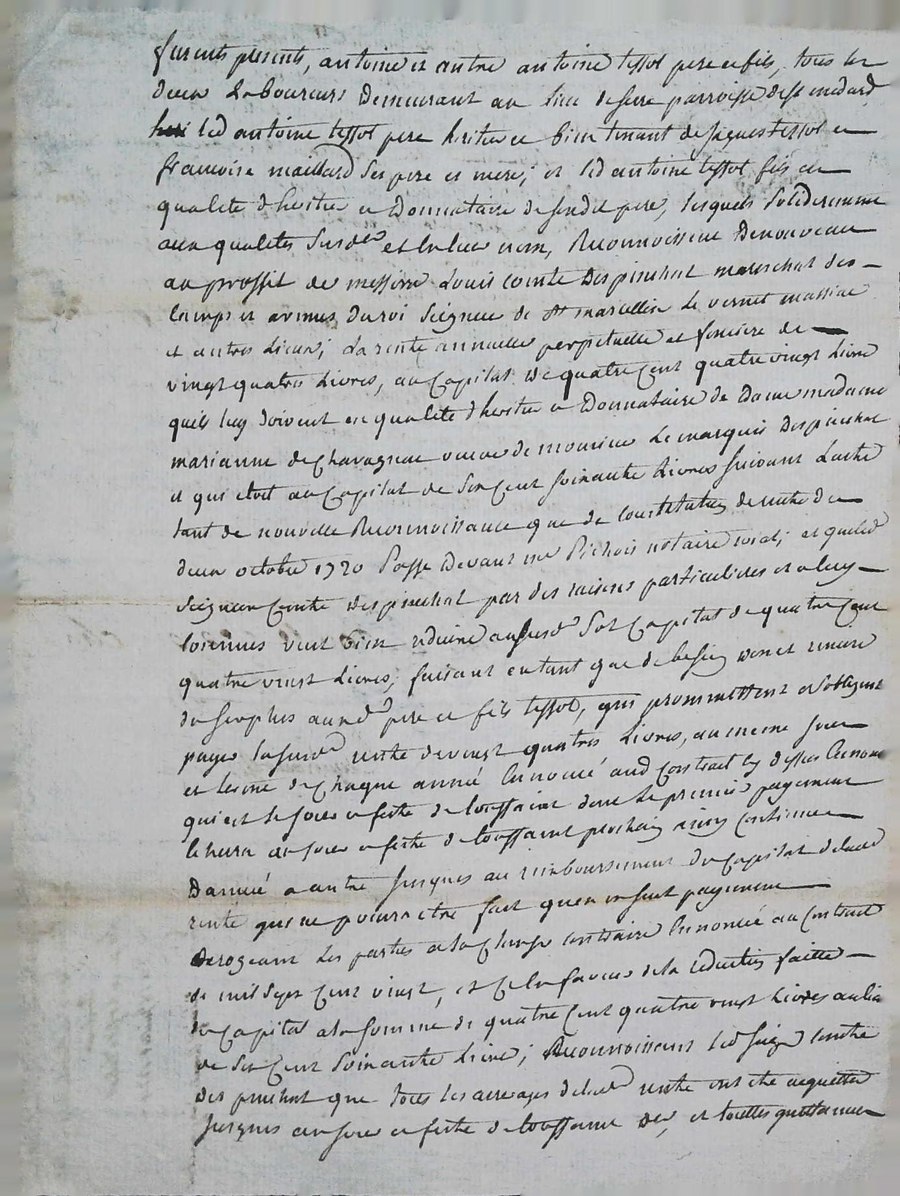 furents presents, antoine et autre antoine tissot pere et fils, tous les
deux Laboureurs Demeurant au lieu de serre parroisse de st medard
led antoine tissot pere heritier et bientenant de jaques tissot et
francoise maillard ses pere et mere; et led antoine tissot fils en
qualite d'heritier et Donnataire de sondit pere, lesquels solideremement
aux qualites susdes et en leur nom, Reconnoissent De nouveau
au proffit de messire Louis comte Despinchal mareschal des
camps et armées du roi seigneur de st marcellin Le vernet massiac
et autres Lieux; La rente annuelle perpetuelle et fonciere de
vingt quatres Livres, au Capital De quatre Cent quatre vingt Livre
quils luy doivent en qualite d'heritier et Donnataire de Dame madame
marianne de Chavagnac veuve de monsieur Le marquis Despinchal
et qui etoit au Capital de six Cent soixante Livres suivant L'acte
tant de nouvelle Reconnoissance que de constitution de rente du
deux octobre 1720 Passé Devant me Pichois notaire roial; et que led
seigneur Comte despinchal par des raisons particulieres et a luy
connues veut bien reduire au susd sol Capital de quatre Cent
quatre vingt Livres; faisant en tant que de besoin Don et remise
du surplus auxd pere et fils tissot, qui promettent et s'obligent
payer la susd rente de vingt quatres Livres, au meme jour
et terme de Chaque année Ennoncé aud Contract cy dessus Ennoncé
qui est le jour et feste de toussaint dont Le premier payement
echera au jour et feste de toussaint prochain ainsy Continuer
D'année a autre jusques au remboursement du Capital de lad
rente qui ne pourra etre fait qu'en un seul payement
Derogeant Les parties a la Clause contraire Ennoncée au Contract
de mil sept Cent vingt, et Ce en faveur de la reduction faitte
du Capital a la somme de quatre Cent quatre vingt Livres au lieu
de six Cent soixante Livre; Reconnoissant Led seigr comte
despinchal que tous les arrerages de lad rente ont ete acquittés
jusques au jour et feste de toussaint der, et touttes quittances